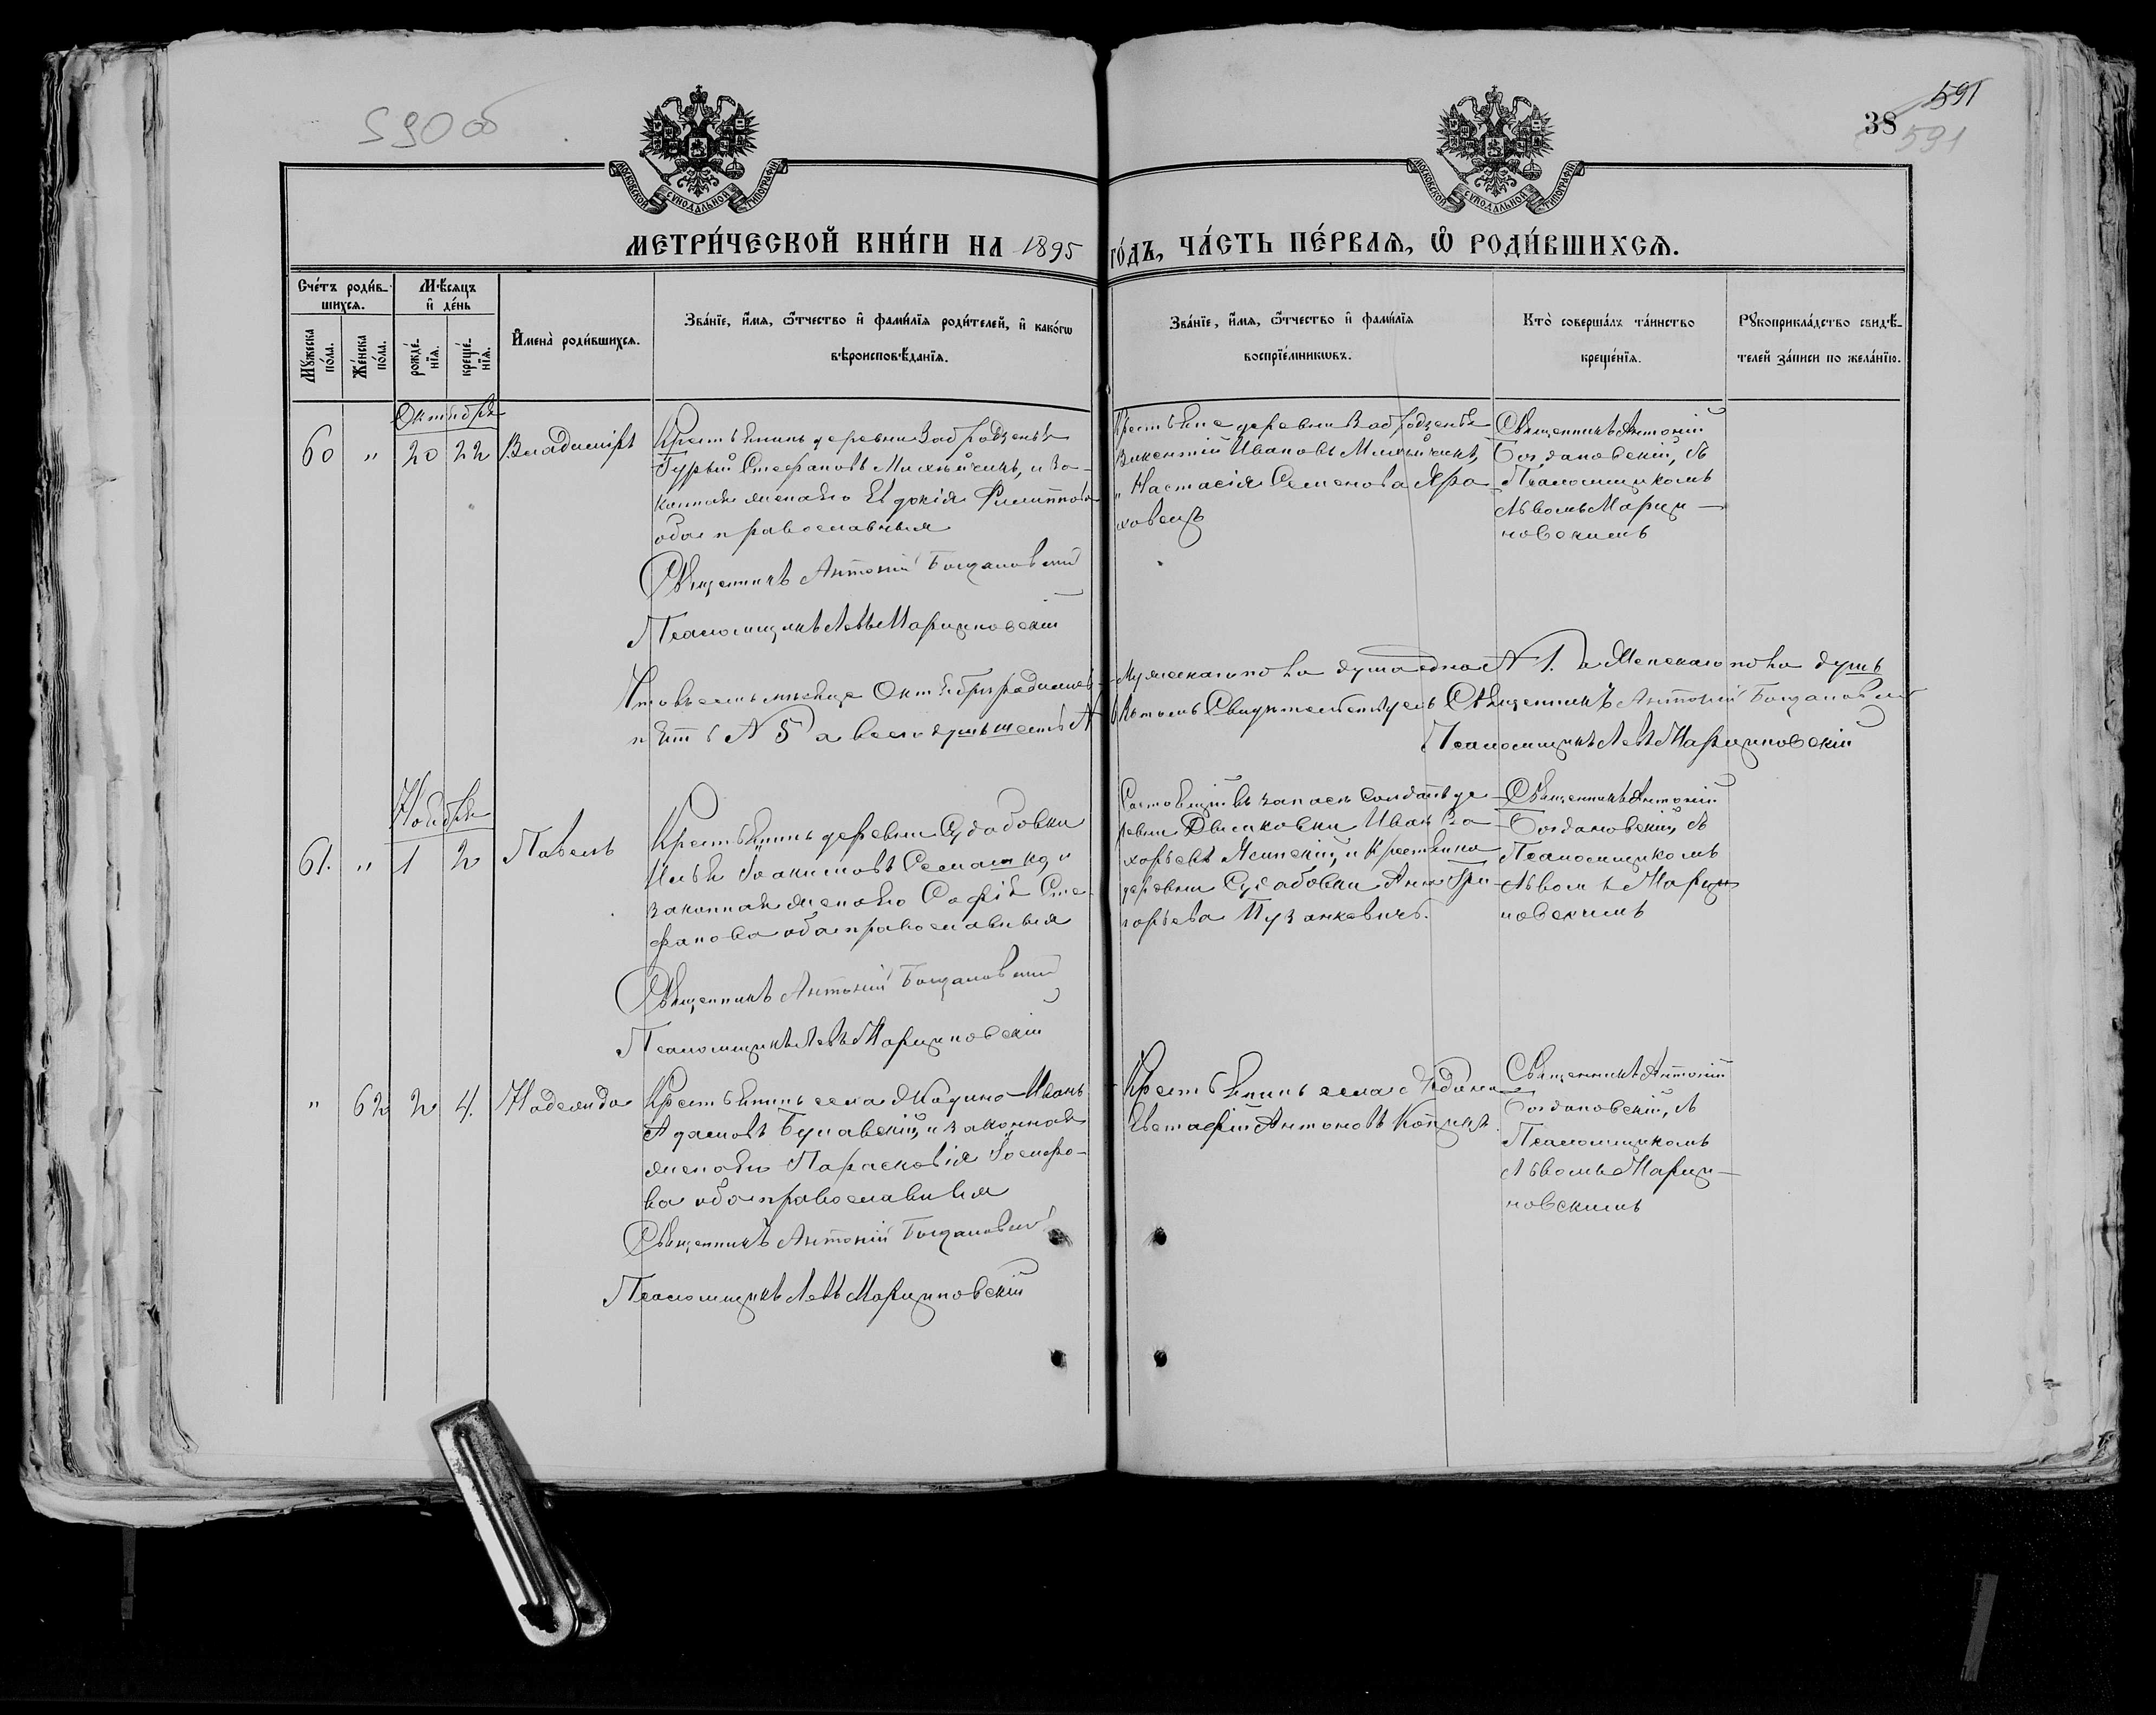 590 об
38
591
591
МОСКОВСКОЙ СѴНОДАЛЬНОЙ ТИПОГРАФІИ
МОСКОВСКОЙ СѴНОДАЛЬНОЙ ТИПОГРАФІИ
МЕТРИ́ЧЕСКОЙ КНИ́ГИ НА 1895 ГО́ДЪ, ЧА́СТЬ ПЕ́РВАѦ, Ѡ РОДИ́ВШИХСѦ.
Сче́тъ роди́в-
шихсѧ.
Мѣ́сѧцъ
и҆ де́нь
Мꙋжеска
по́ла.
Же́нска
по́ла.
рожде́-
нїѧ.
креще́-
нїѧ.
И҆мена̀ роди́вшихсѧ.
Зва́нїе, и҆́мѧ, ѻ҆́тчество и҆ фами́лїѧ роди́телей, и҆ како́гѡ
вѣроисповѣ́данїѧ.
Зва́нїе, и҆́мѧ, ѻ҆́тчество и҆ фами́лїѧ
воспрїе́мникѡвъ.
Кто̀ соверша́лъ та́инство
креще́нїѧ.
Рꙋкоприкла́дство свидѣ́-
телей за́писи по жела́нїю.
Октября
60 " 20 22 Владиміръ
Крестьянинъ деревни
Гурій Стефановъ и за-
конная жена его Евдокія Филиппова
оба православныя
Священникъ Антоній Богдановскій
Псаломщикъ Левъ Марциновскій
Крестьяне деревни
Викентій Ивановъ
Настасія Семенова
Священникъ Антоній
Богдановскій, съ
Псаломщикомъ
Львомъ Марци-
новскимъ
Что въ семъ мѣсяцѣ Октябрѣ родилось Мужескаго пола душа одна № 1. а Женскаго пола душъ
пять № 5 а всего душъ шесть № 6 въ томъ Свидѣтельствуемъ Священникъ Антоній Богдановскій
Псаломщикъ Левъ Марциновскій
Ноября
61. " 1 2 Павелъ
Крестьянинъ деревни Судабовки
Илья Іоакимовъ Семашко, и
законная жена его Софія Сте-
фанова оба православныя
Священникъ Антоній Богдановскій
Псаломщикъ Левъ Марциновскій
Состоящій въ запасѣ Солдатъ де
ревни Иванъ За
харьевъ Ясинскій, и Крестьянка
деревни Судабовки Анна Гри
горьева Пузанкевичъ.
Священникъ Антоній
Богдановскій, съ
Псаломщикомъ
Львомъ Марци
новскимъ
" 62 2 4. Надежда
Крестьянинъ села Жадино Иванъ
Адамовъ Булавскій, и законная
жена его Парасковія Іосифо-
ва оба православныя
Священникъ Антоній Богдановскій
Псаломщикъ Левъ Марциновскій
Крестьянинъ села
Евстафій Антоновъ
Священникъ Антоній
Богдановскій, съ
Псаломщикомъ
Львомъ Марци-
новскимъ